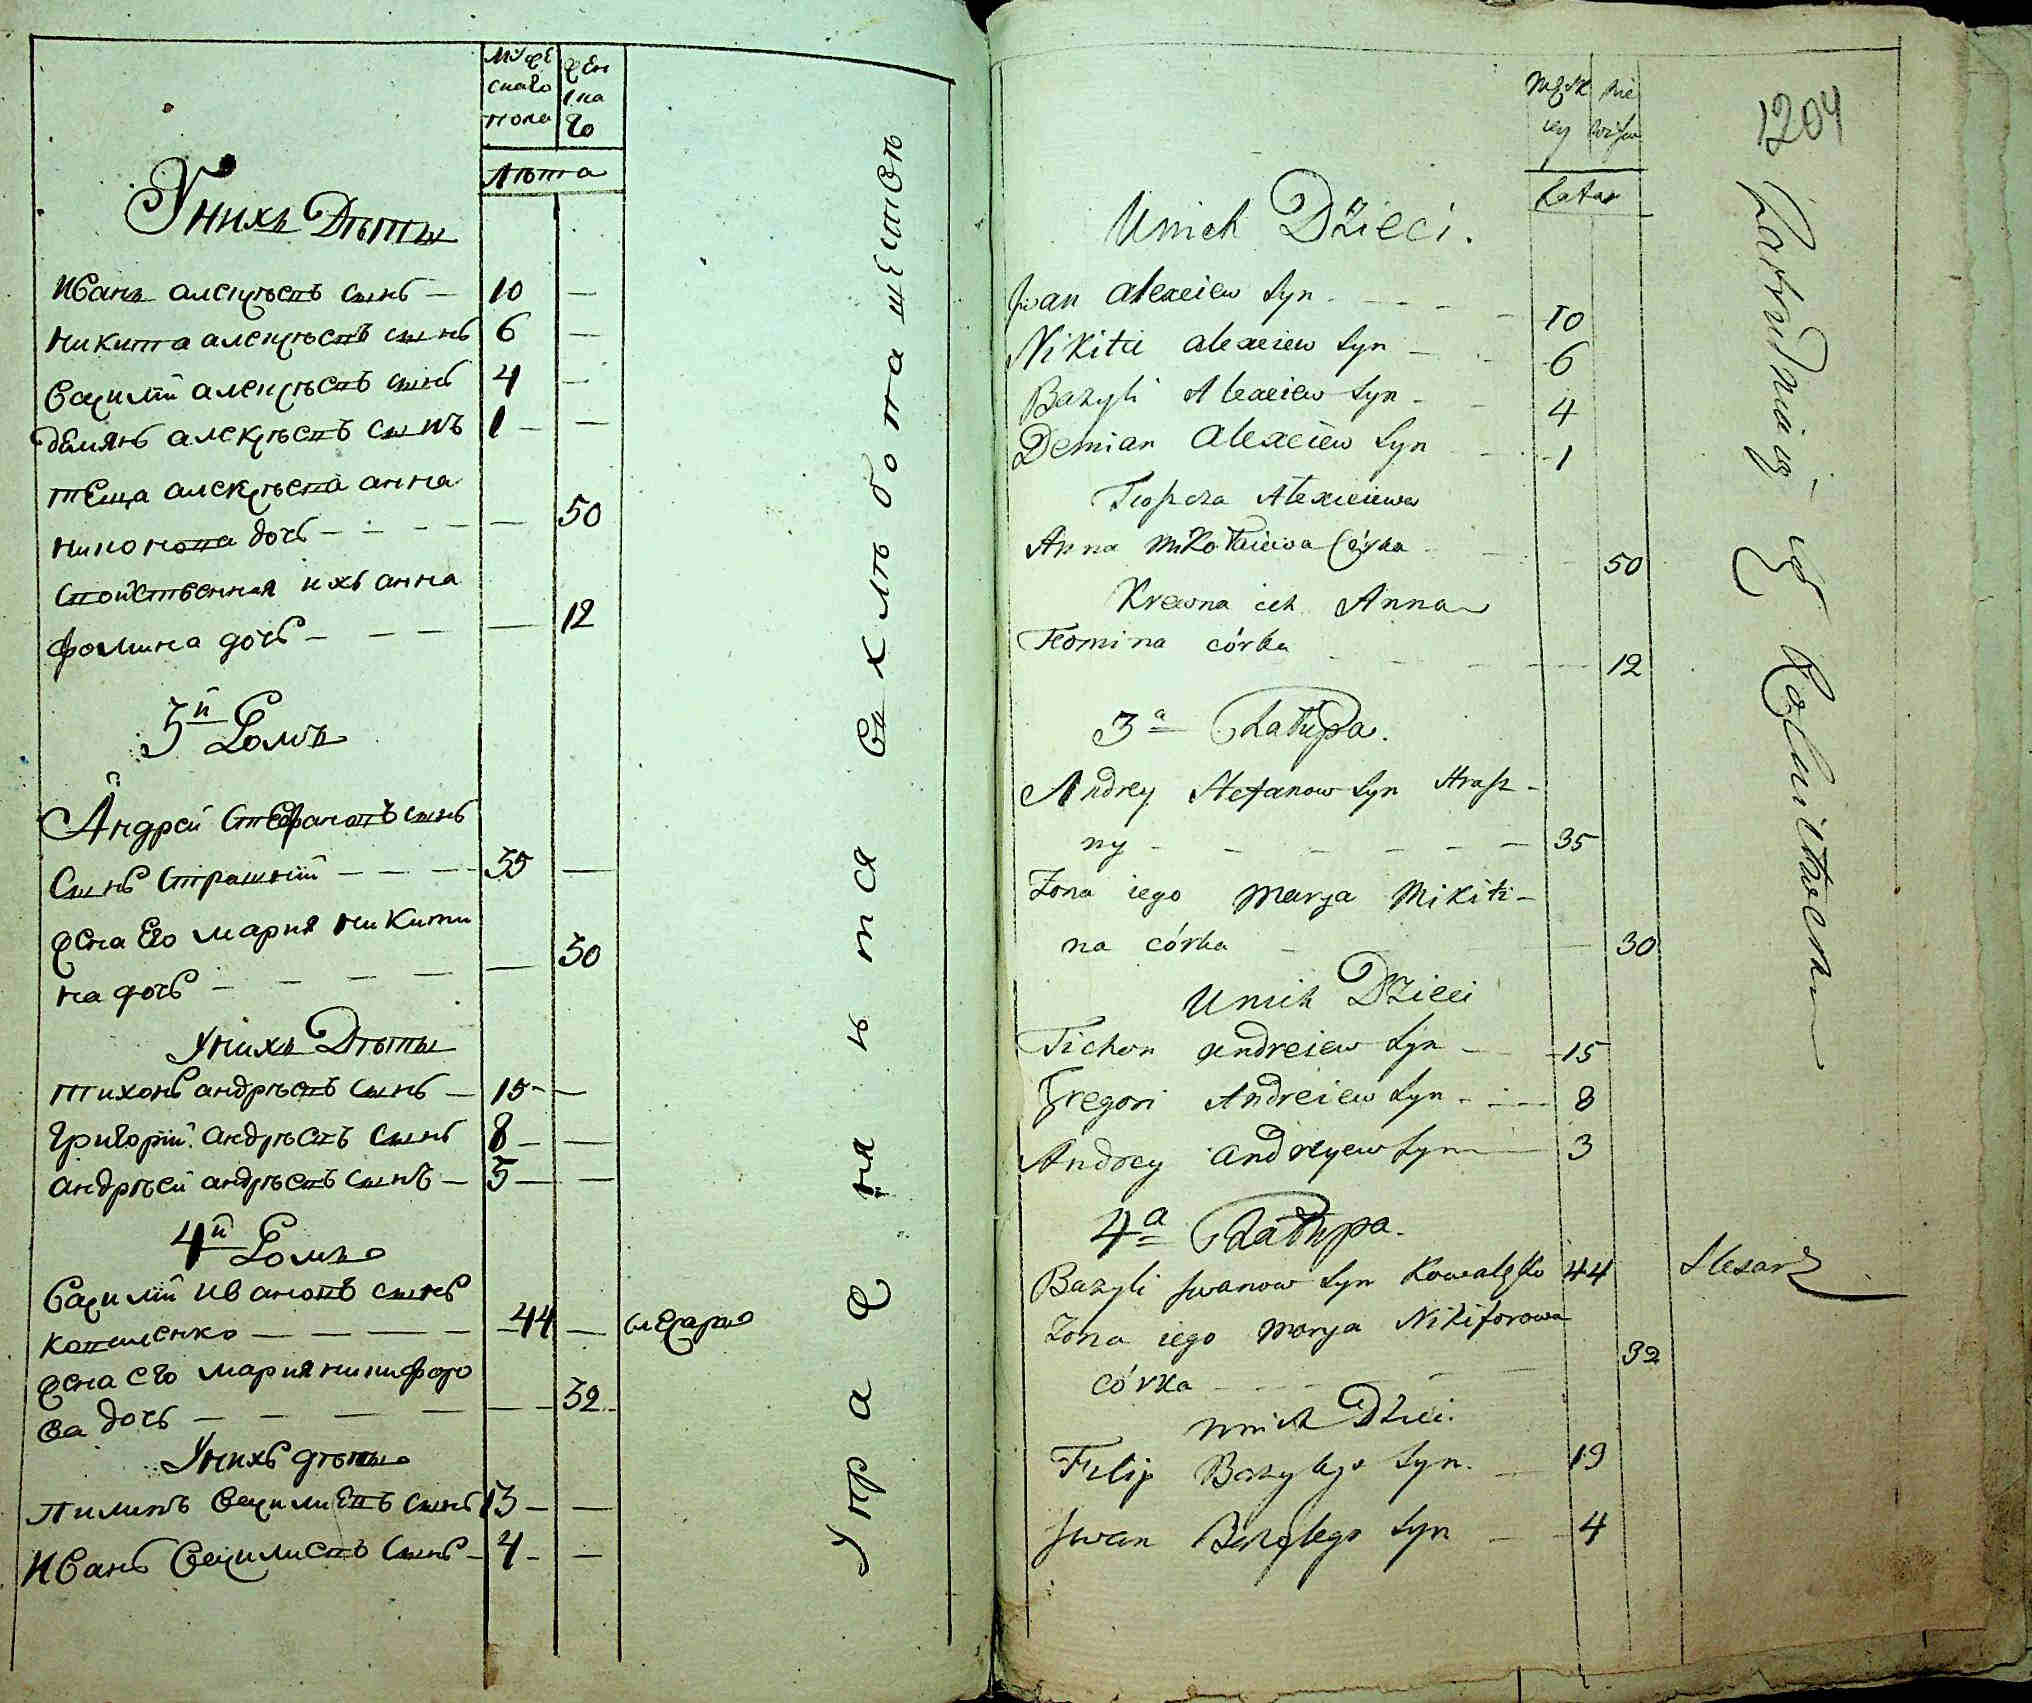 Муже
скаго
пола
жен
ска
го
Лѣта
У нихъ Дѣты
Иванъ алексѣевъ сынъ — 10 —
Никита алексѣевъ сынъ 6 —
Василій алексѣевъ сынъ 4 —
демянъ алексѣевъ сынъ 1 — —
теща алексѣева анна
никонова дочь — — — — 50
свойственная ихъ анна
фомина дочь — — — — 12
3й Домъ
Андрей Стефановъ сынъ
Сынъ Страшній — — — 35 —
жена Его мария Никити
на дочь — — — — 30
У нихъ Дѣты
тихонъ андрѣевъ сынъ — 15 — —
григорій андрѣевъ сынъ 8 — —
андрѣй андрѣевъ сынъ — 3 — —
4й Домъ
Василій Ивановъ сынъ
коваленко — — — — 44 — слесарь
жена его мария никифоро
ва дочь — — — — 32
У нихъ дѣты
пилипъ василиевъ сынъ 13 — —
Иванъ Василиевъ сынъ — 4 — —
Упражняются въ хлѣбопашествѣ
1204
Męsk
iey
Nie
wiesci
Lata
U nich Dzieci.
Jwan Alexeiew Syn — 10
Nikita alexeiew Syn — 6
Bazyli Alexeiew Syn — 4
Demian Alexeiew Syn — 1
Teszcza Alexieiewa
Anna Mikołaiewa Córka — 50
Krewna ich Anna
Fomina córka — 12
3a Chałupa.
Andrey Stefanow Syn Strasz-
ny — — — — — 35
Żona iego Marya Mikiti-
na córka — 30
U nich Dzieci
Tichon Andreiew Syn — 15
Gregori Andreiew Syn — 8
Andrey Andreyew Syn — 3
4a Chałupa.
Bazyli Jwanow Syn Kowalęko 44 Slesarz
Żona iego Marya Nikiforowa
córka — 32
U nich Dzieci.
Filip Bazylego Syn. — 13
Jwan Bazylego Syn — 4
Zatrudniaią się Rolnictwem